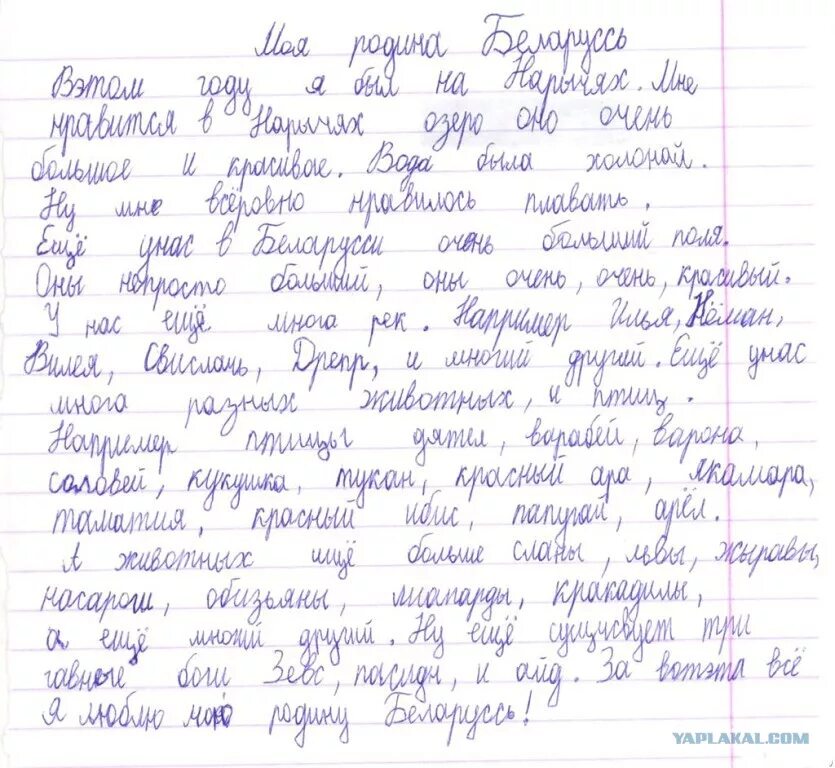 Моя родина Беларуссь
Вэтом году я был на Нарычях. Мне
нравится в Нарычях озеро оно очень
большое и красивае. Вода была холонай.
Ну мне всёровно нравилось плавать.
Ещё унас в Беларусси очень большый поля.
Оны непросто большый, оны очень, очень, красивый.
У нас ещё многа рек. Например Илья, Нёман,
Вилея, Свислачь, Дрепр, и многий другий. Ещё унас
многа разных животных, и птиц.
Например птицы дятел, варабей, варона,
соловей, кукушка, тукан, красный ара, якамара,
таматия, красный ибис, папугай, арёл.
А животных ищё больше сланы, львы, жыравы,
насароги, обизьяны, лиапарды, кракадилы,
а ещё многий другий. Ну ещё сущисвует три
гавные боги Зевс, пасидн, и айд. За вотэта всё
я люблю мою родину Беларуссь!
YAPLAKAL.COM